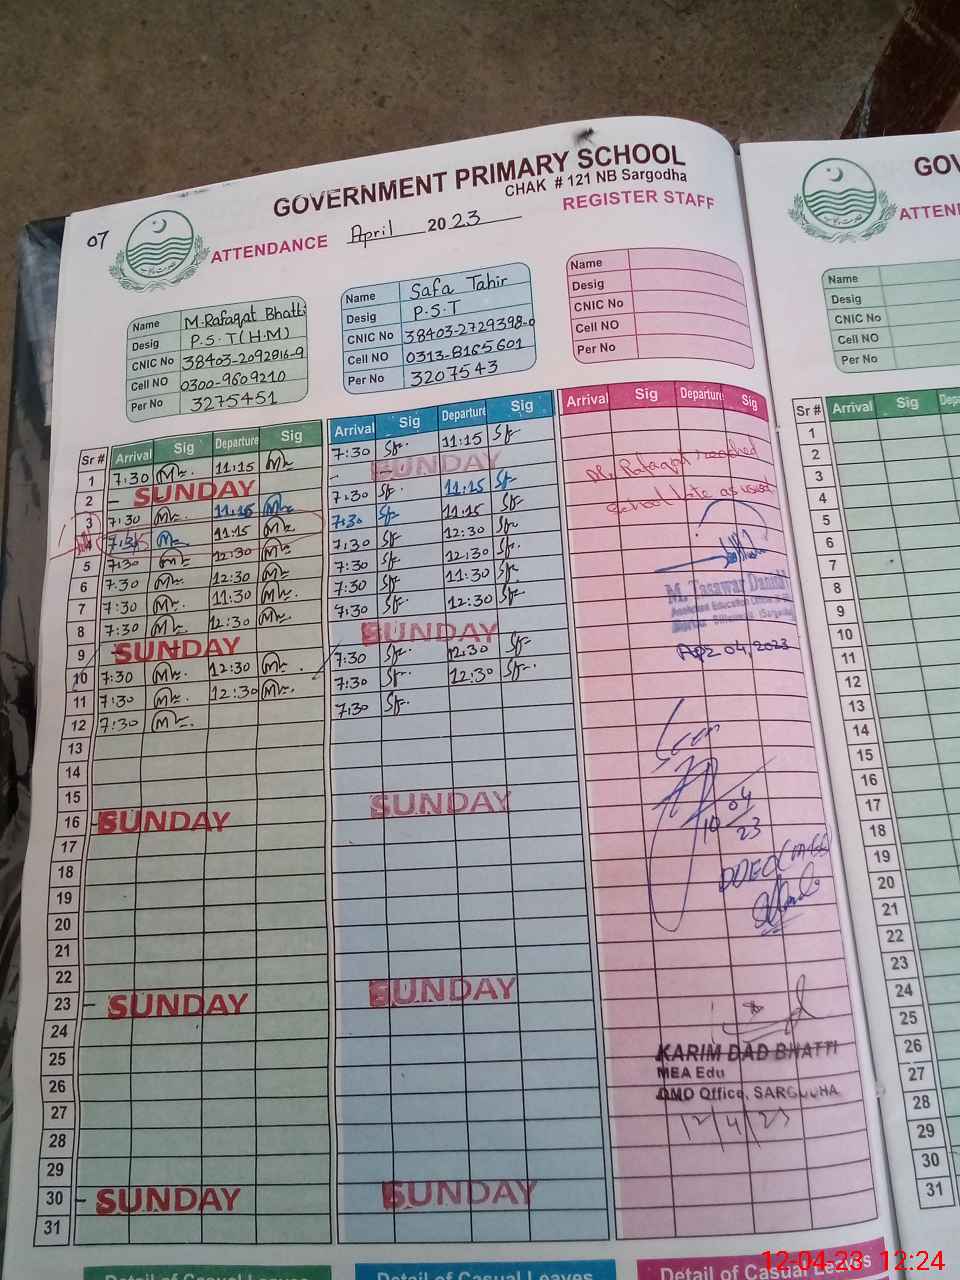 GOVERNMENT PRIMARY SCHOOL
CHAK # 121 NB Sargodha
07
ATTENDANCE April 2023 REGISTER STAFF
Name M.Rafaqat Bhatti
Desig P.S.T (H.M)
CNIC No 38403-2092816-9
Cell NO 0300-9609210
Per No 3275451
Name Safa Tahir
Desig P.S.T
CNIC No 38403-2729398-0
Cell NO 0313-8165601
Per No 3207543
Name
Desig
CNIC No
Cell NO
Per No
Sr # Arrival Sig Departure Sig Arrival Sig Departure Sig Arrival Sig Departure Sig
1 7:30 11:15 7:30 11:15
2 - SUNDAY SUNDAY
3 7:30 11:15 7:30 11:15
4 11:15 7:30 11:15
5 7:30 12:30 7:30 12:30
6 7:30 12:30 7:30 12:30
7 7:30 11:30 7:30 11:30
8 7:30 12:30 7:30 12:30
9 SUNDAY SUNDAY
10 7:30 12:30 7:30 12:30
11 7:30 12:30 7:30 12:30
12 7:30 7:30
13
14
15
16 - SUNDAY SUNDAY
17
18
19
20
21
22
23 - SUNDAY SUNDAY
24
25
26
27
28
29
30 - SUNDAY SUNDAY
31
Rafaqat reached
School late as usual
M. Tasawar
Assistant Education
APR 04, 2023
10 04 23
KARIM DAD BHATTI
MEA Edu
DMO Office, SARGODHA
12/4/23
Detail of Casual Leaves
Detail of Casual Leaves
Detail of Casual Leaves
GOV
ATTEN
Name
Desig
CNIC No
Cell NO
Per No
Sr # Arrival Sig Depa
1
2
3
4
5
6
7
8
9
10
11
12
13
14
15
16
17
18
19
20
21
22
23
24
25
26
27
28
29
30
31
12-04-23 12:24